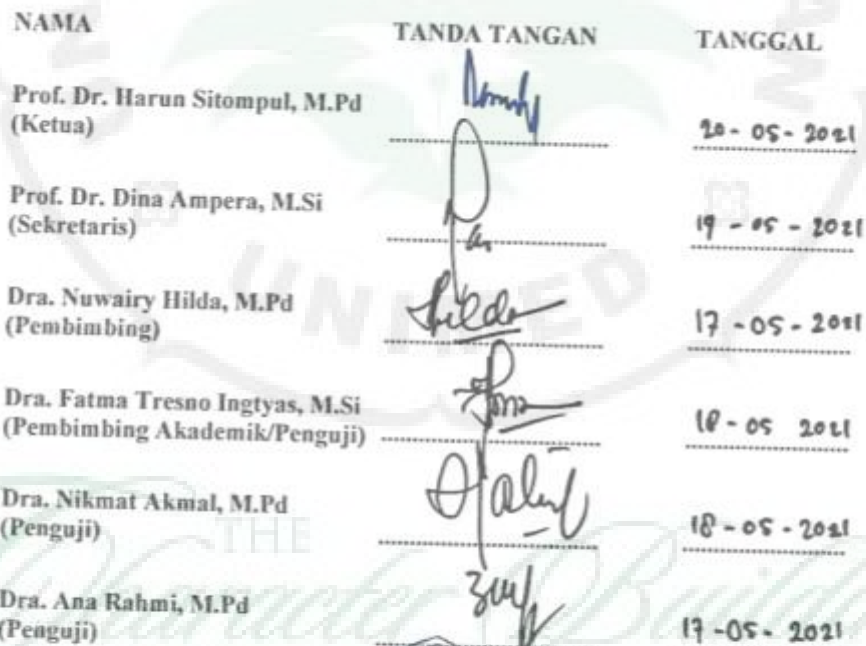 NAMA TANDA TANGAN TANGGAL
Prof. Dr. Harun Sitompul, M.Pd
(Ketua) 20-05-2021
Prof. Dr. Dina Ampera, M.Si
(Sekretaris) 19-05-2021
Dra. Nuwairy Hilda, M.Pd Hilda
(Pembimbing) 17-05-2021
Dra. Fatma Tresno Ingtyas, M.Si
(Pembimbing Akademik/Penguji) 18-05 2021
Dra. Nikmat Akmal, M.Pd
(Penguji) 18-05-2021
Dra. Ana Rahmi, M.Pd
(Penguji) 17-05-2021
UNIMED
THE
Character Building